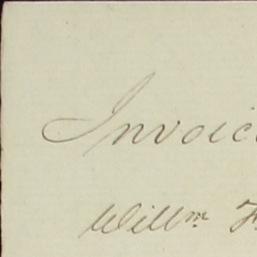 Invoic
Willm F